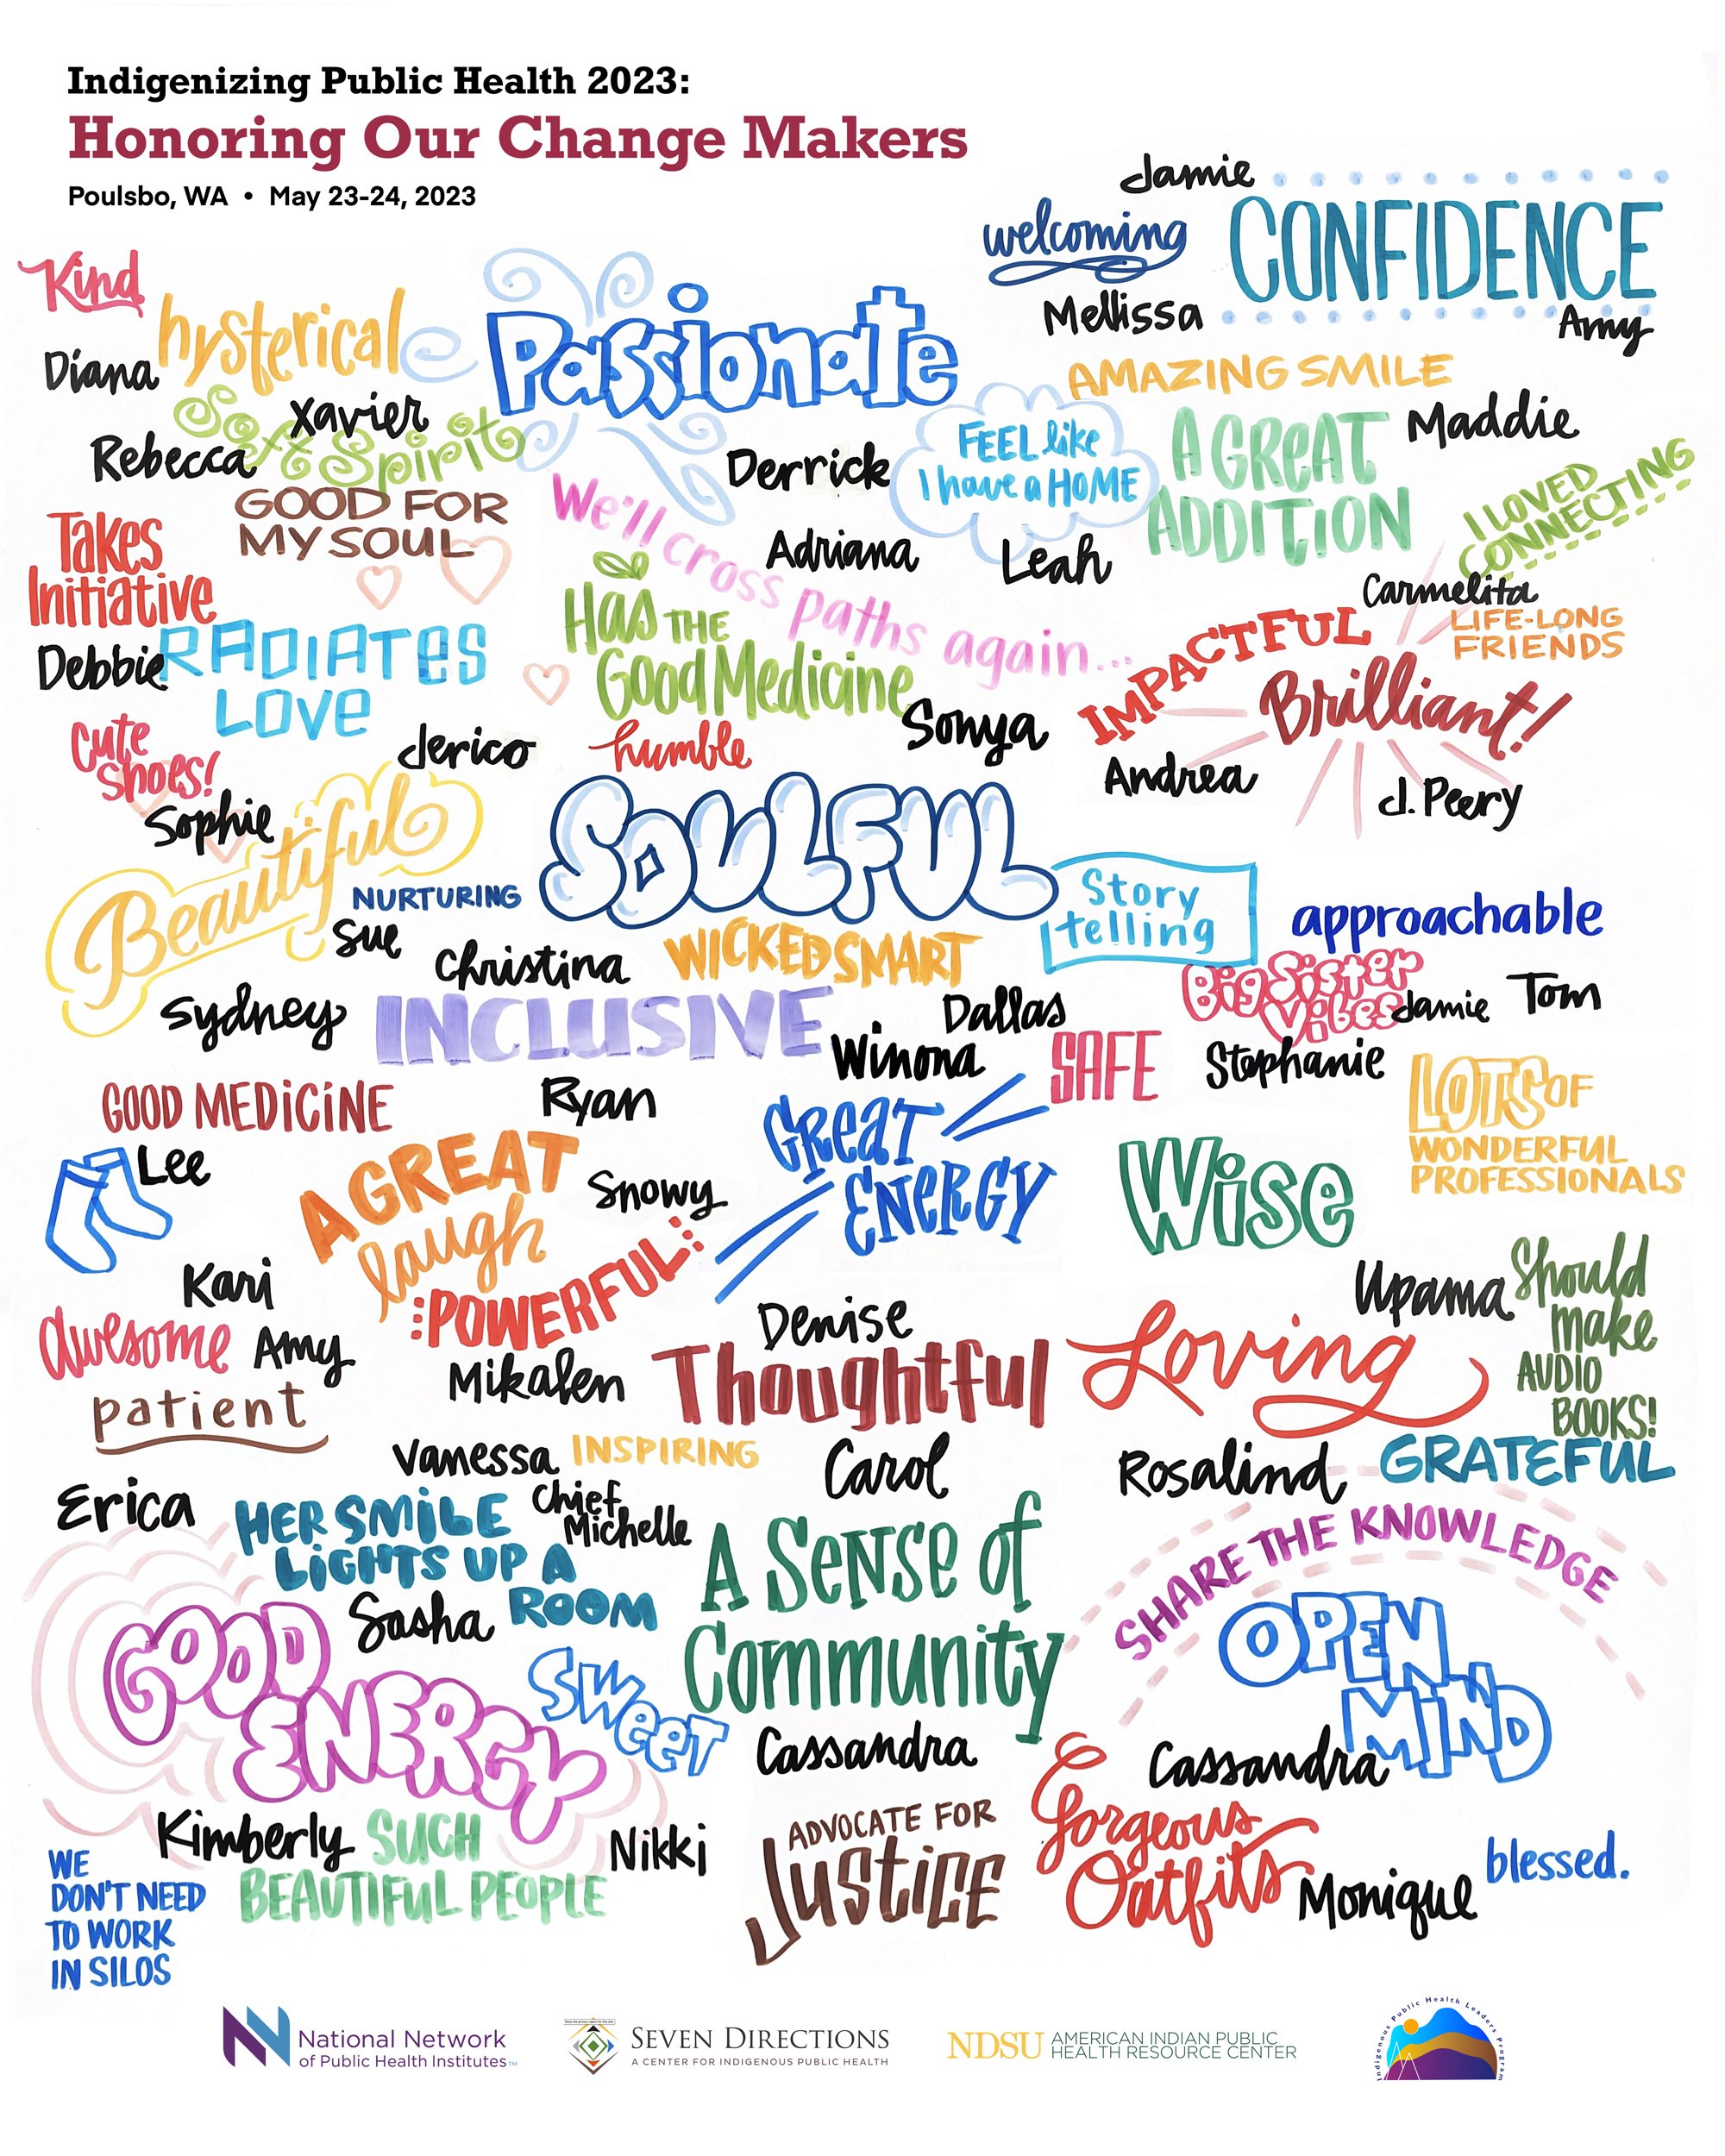 Indigenizing Public Health 2023:
Honoring Our Change Makers
Poulsbo, WA • May 23-24, 2023
Jamie
welcoming
CONFIDENCE
Mellissa
Amy
Kind
hysterical
Diana
Passionate
AMAZING SMILE
Xavier
Soft Spirit
Rebecca
Derrick
FEEL like
I have a HOME
A GREAT
ADDITION
Maddie
I LOVED
CONNECTING
GOOD FOR
MY SOUL
We'll cross paths again...
Takes
Initiative
Adriana
Leah
Carmelita
LIFE-LONG
FRIENDS
Debbie
RADIATES
LOVE
Has THE
Good Medicine
IMPACTFUL
Brilliant!
Cute
Shoes!
Jerico
humble
Sonya
Andrea
J. Peery
Sophie
Beautiful
SOULFUL
NURTURING
Sue
Story
telling
approachable
Christina
WICKED SMART
Big Sister
Vibes
Jamie
Tom
Sydney
INCLUSIVE
Dallas
Winona
SAFE
Stephanie
LOTS OF
WONDERFUL
PROFESSIONALS
GOOD MEDiCiNE
Ryan
GREAT
ENERGY
Lee
A GREAT
laugh
Snowy
Wise
Kari
POWERFUL
Upama
Should
make
AUDIO
BOOKS!
awesome
Amy
Denise
Mikalen
Thoughtful
Loving
patient
Vanessa
INSPIRING
Carol
Rosalind
GRATEFUL
Erica
HER SMiLE
LiGHTS UP A
ROOM
Chief
Michelle
Sasha
A SENSE of
Community
SHARE THE KNOWLEDGE
OPEN
MIND
GOOD
ENERGY
SWEET
Cassandra
Cassandra
Kimberly
SUCH
BEAUTIFUL PEOPLE
Nikki
ADVOCATE FOR
JUSTiCE
Gorgeous
Outfits
Monique
blessed.
WE
DON'T NEED
TO WORK
IN SILOS
National Network
of Public Health Institutes™
SEVEN DIRECTIONS
A CENTER FOR INDIGENOUS PUBLIC HEALTH
NDSU AMERICAN INDIAN PUBLIC
HEALTH RESOURCE CENTER
Indigenous Public Health Leaders Program